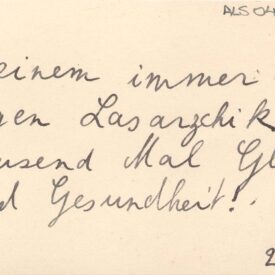 ALS 04
einem immer
gen Lasarzchik
ausend Mal Gl
d Gesundheit!
2